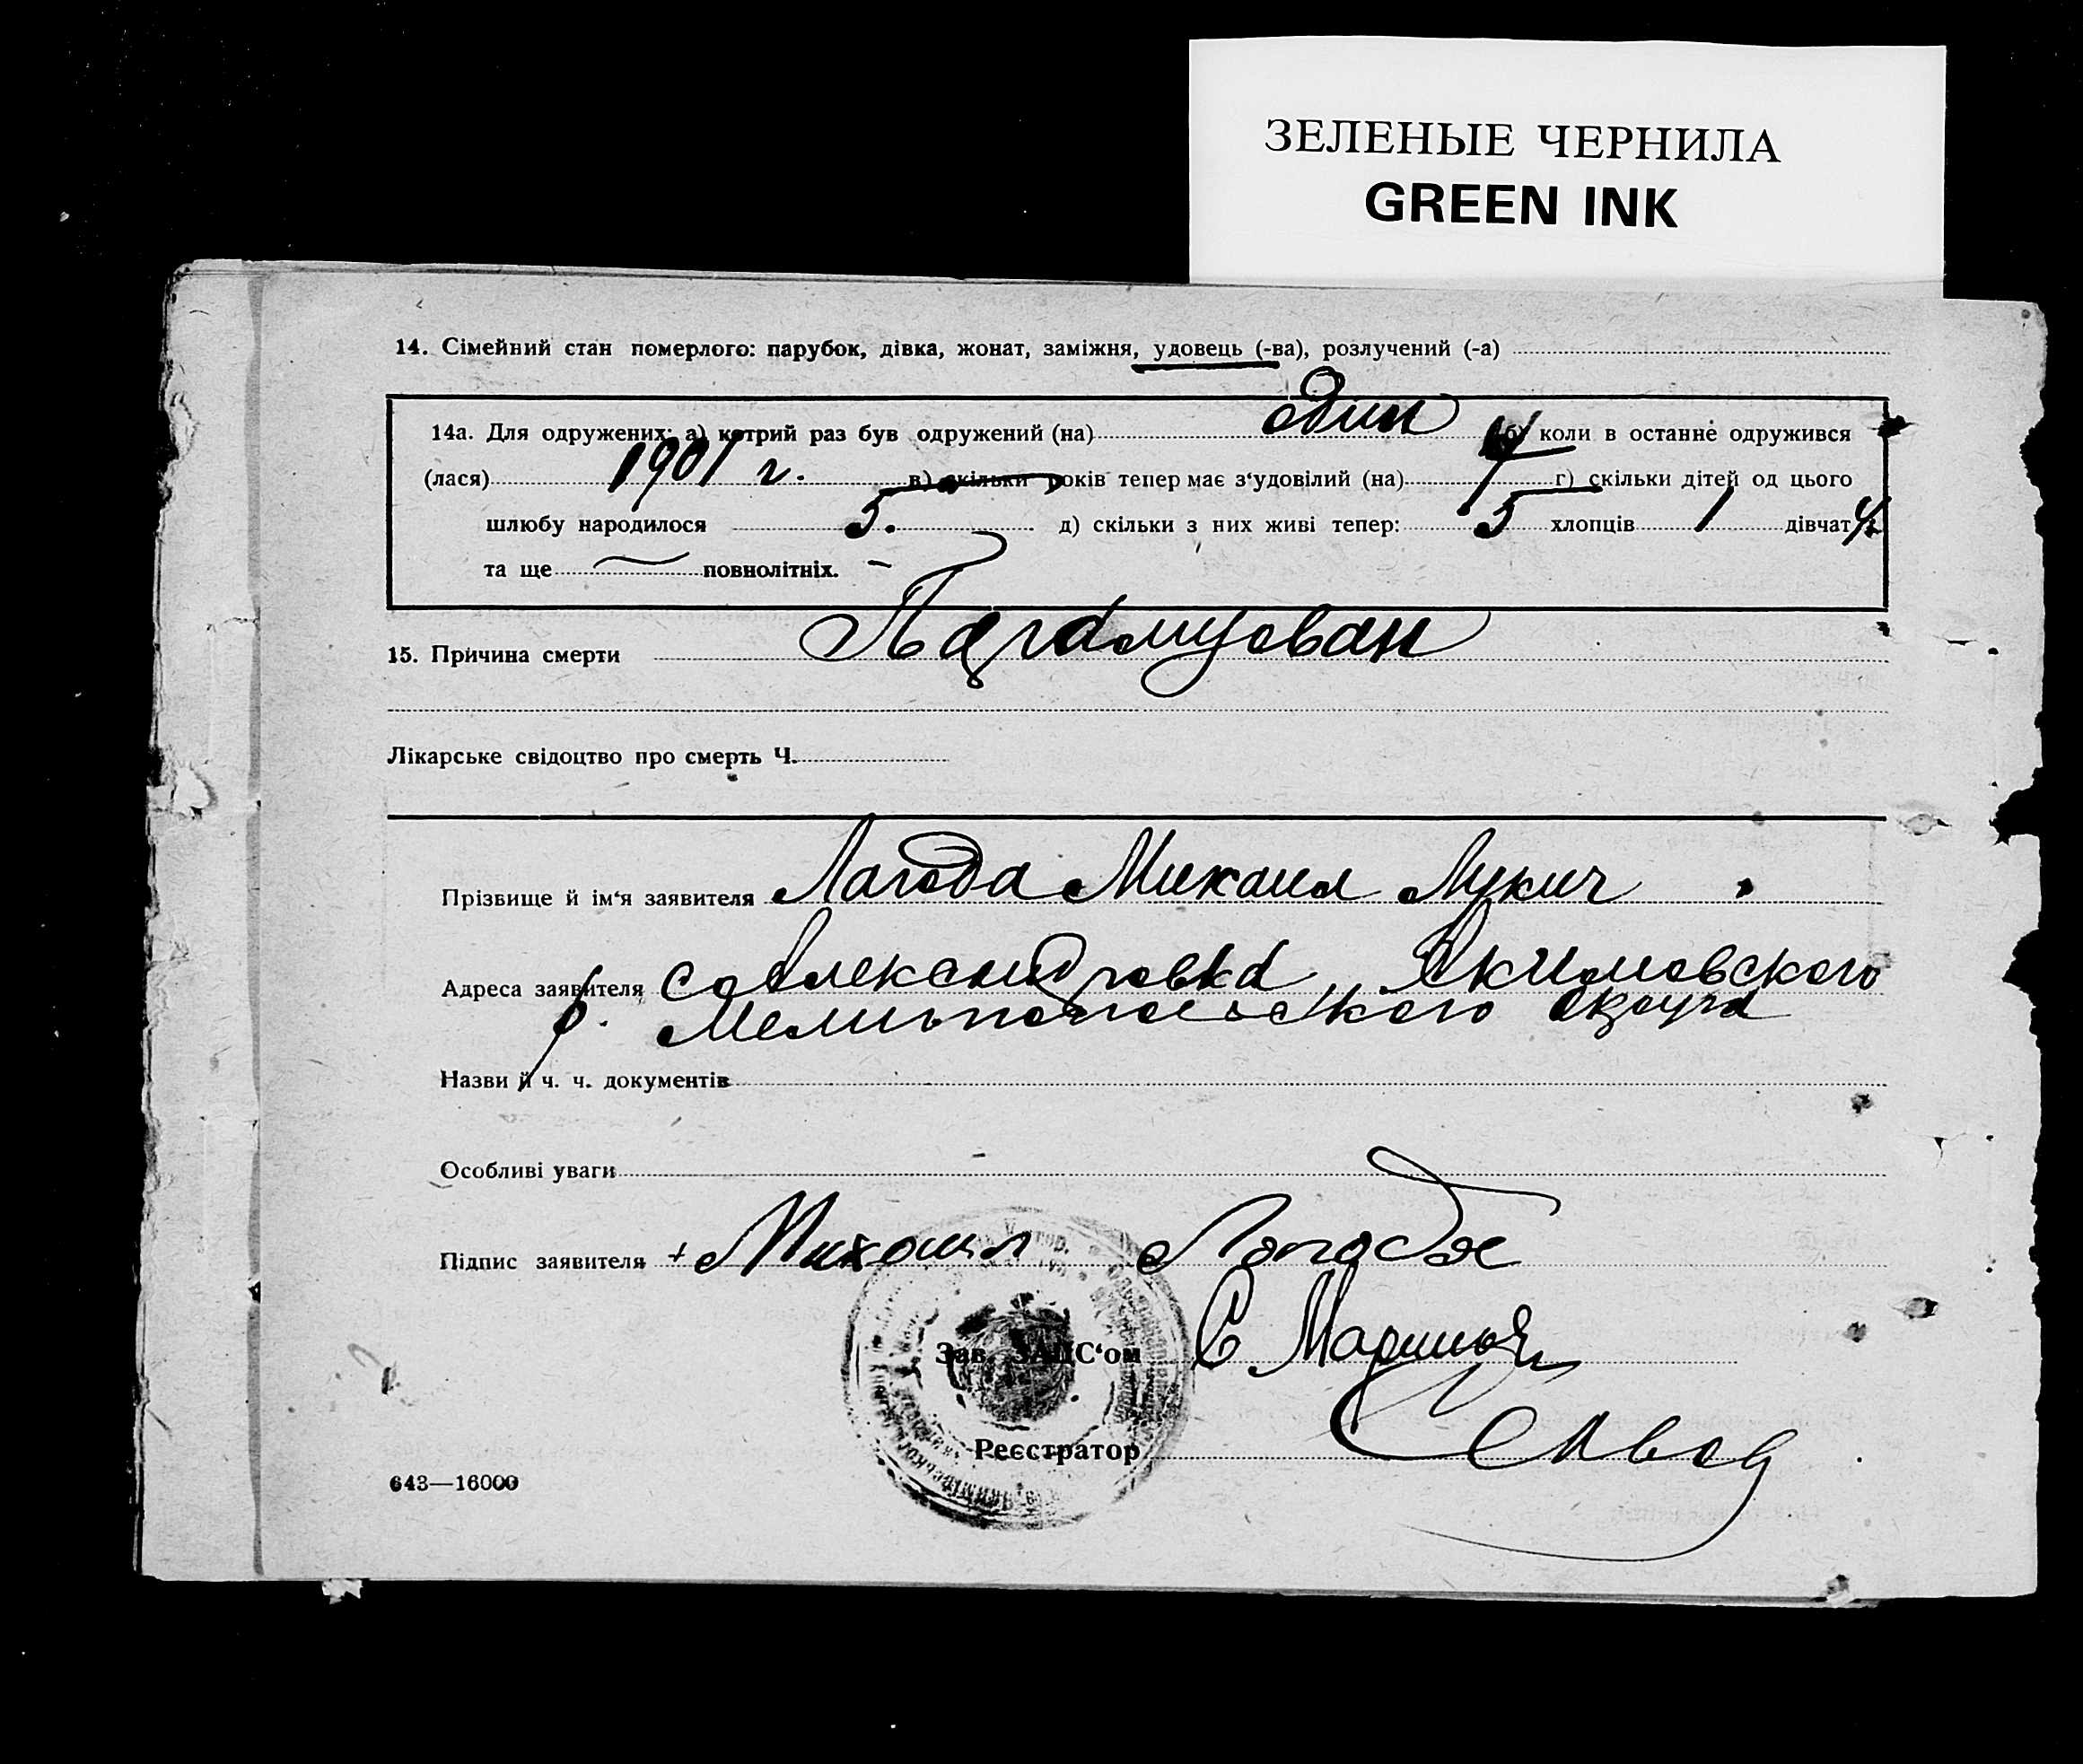 ЗЕЛЕНЫЕ ЧЕРНИЛА
GREEN INK
14. Сімейний стан померлого: парубок, дівка, жонат, заміжня, удовець (-ва), розлучений (-а)
14а. Для одружених: а) котрий раз був одружений (на) один б) коли в останнє одружився
(лася) 1901 г. в) скільки років тепер має з‘удовілий (на) г) скільки дітей од цього
шлюбу народилося 5. д) скільки з них живі тепер: 5 хлопців 1 дівчат 4
та ще повнолітніх.
15. Причина смерти
Лікарське свідоцтво про смерть Ч.
Прізвище й ім‘я заявителя Лагода Михаил Лукич
Адреса заявителя с Александровка, Якимовского
р. Мелитопольского округа
Назви й ч. ч. документів
Особливі уваги
Підпис заявителя + Михаил Лагода
Зав. ЗАГС‘ом
Реєстратор
643—16000